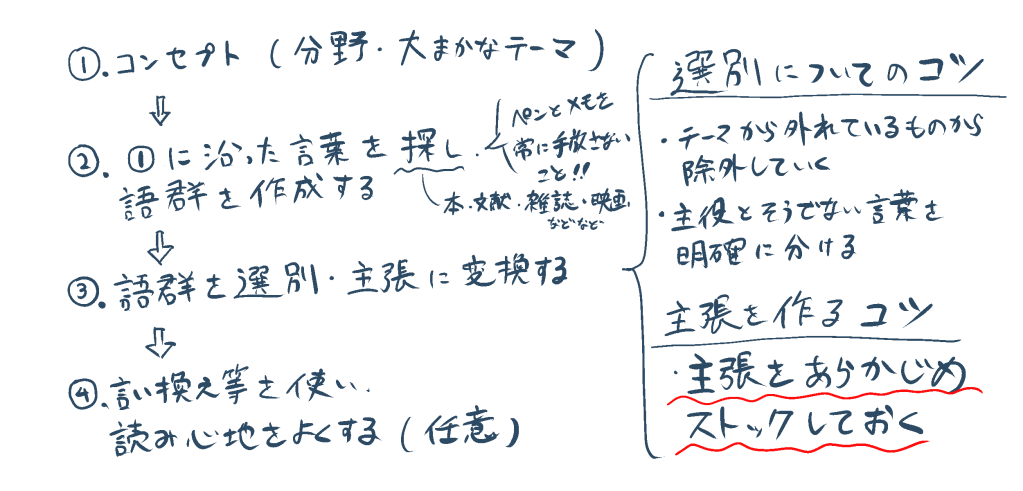 ①.コンセプト（分野・大まかなテーマ）
⇩
②.①に沿った言葉を探し.
語群を作成する
ペンとメモを
常に手放さない
こと!!
本.文献.雑誌・映画,
などなど
⇩
③.語群を選別・主張に変換する
⇩
④.言い換え等を使い.
読み心地をよくする（任意）
選別についてのコツ
・テーマから外れているものから
除外していく
・主役とそうでない言葉を
明確に分ける
主張を作るコツ
・主張をあらかじめ
ストックしておく